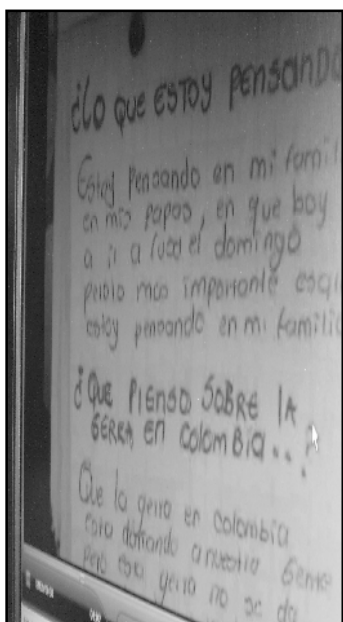 ¿LO QUE ESTOY PENSANDO
Estoy pensando en mi famil
en mis papas, en que boy
a ir a el domingo
pero lo mas importante esqu
estoy pensando en mi familia
¿QUE PIENSO SOBRE lA
GERRA EN COLOMBIA..?
Que la gerra en colombia
esta dañando a nuestra Gente
pero esta gerra no se da